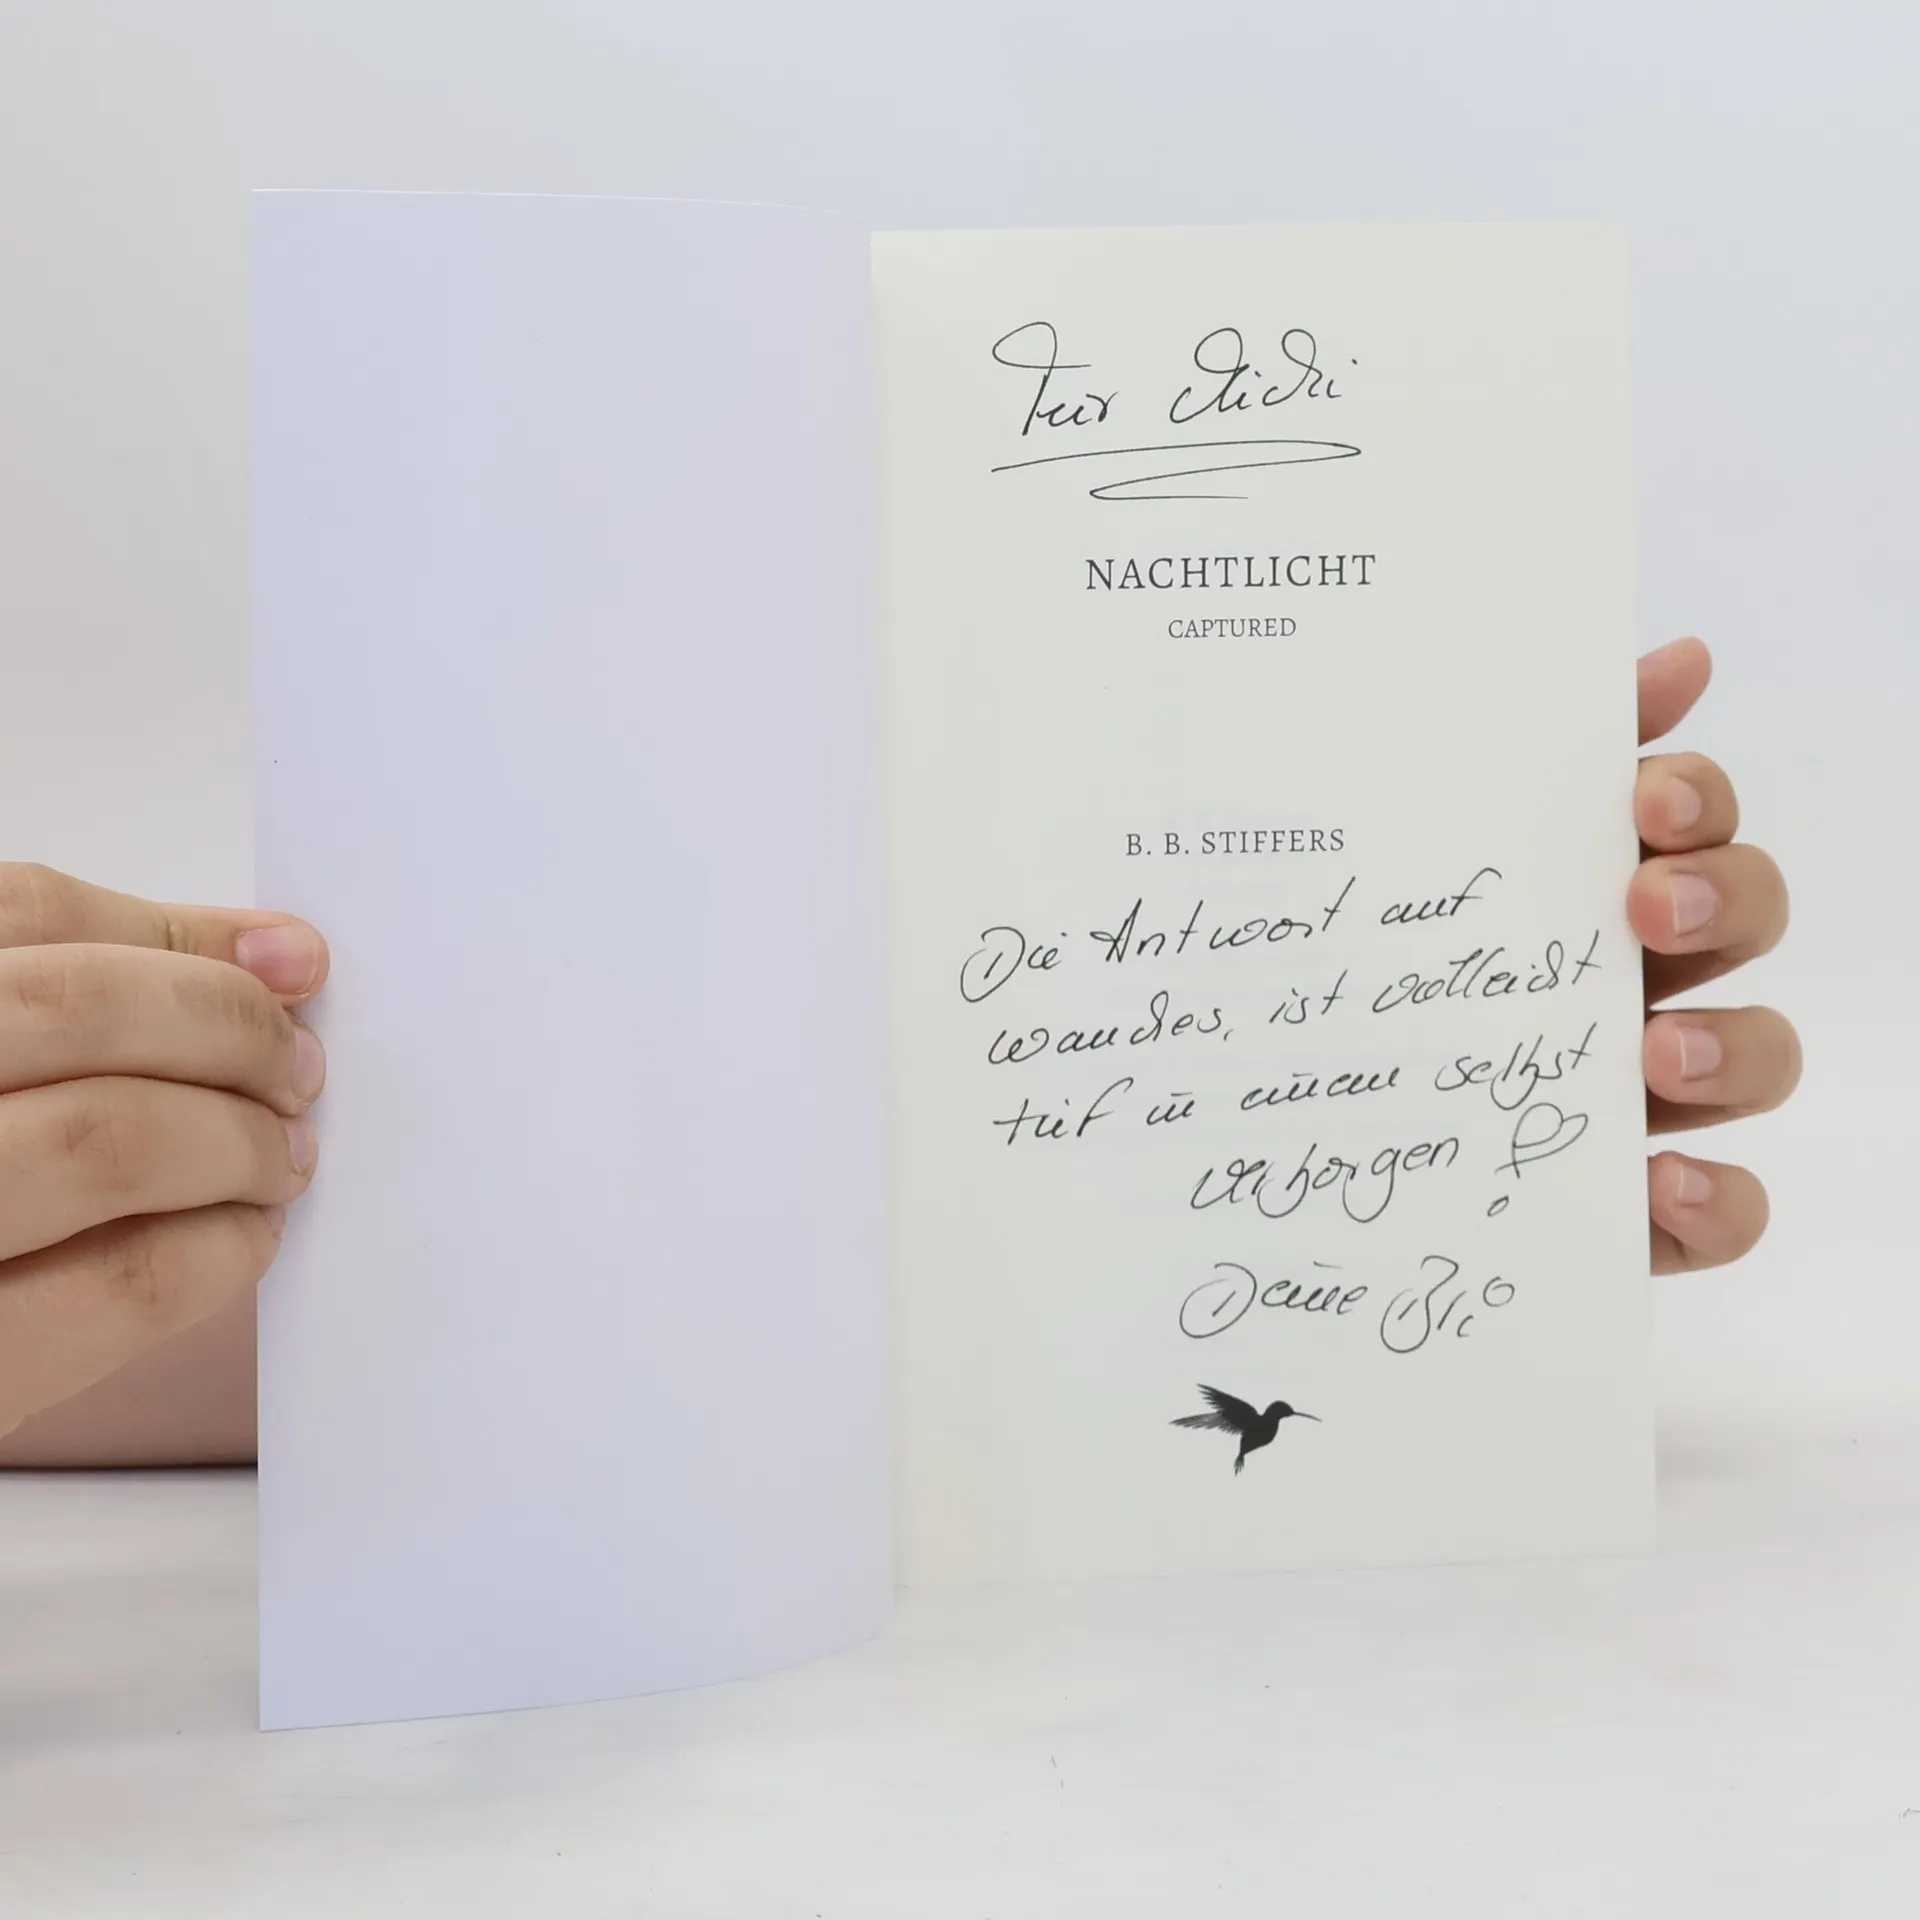 Für Michi
NACHTLICHT
CAPTURED
B. B. STIFFERS
Die Antwort auf
manches, ist vielleicht
tief in einem selbst
verborgen
Deine